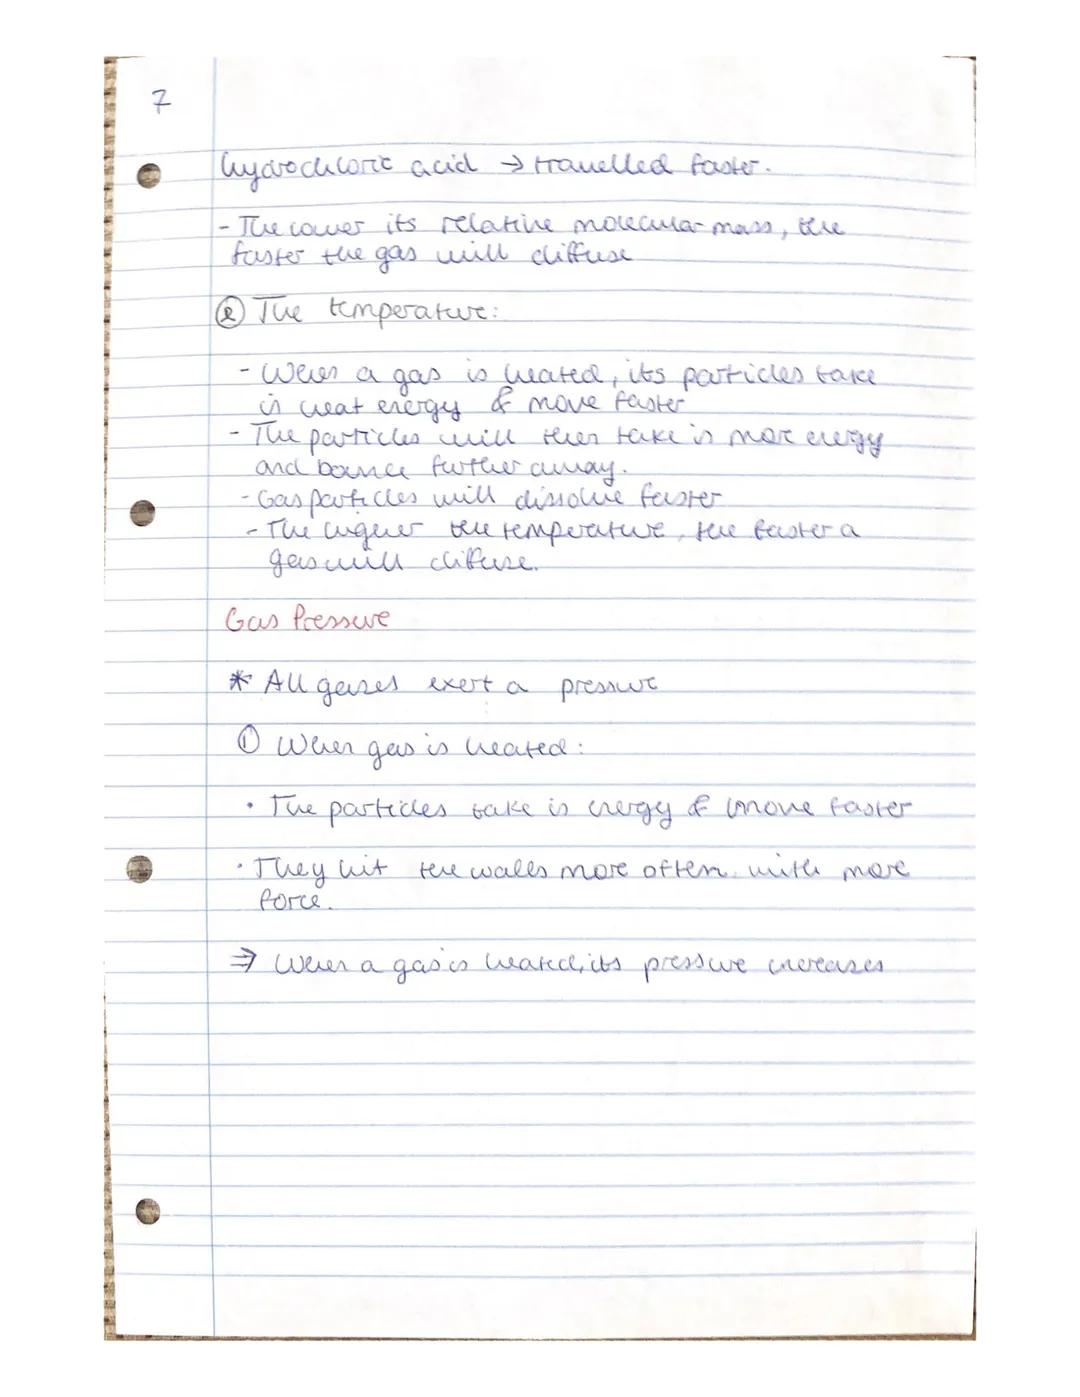 7
hydrochloric acid → travelled faster.
- The lower its relative molecular mass, the
faster the gas will diffuse
② The temperature:
- When a gas is heated, its particles take
in heat energy & move faster
- The particles will then take in more energy
and bounce further away.
- Gas particles will dissolve faster
- The higher the temperature, the faster a
gas will difuse.
Gas Pressure
* All gases exert a pressure
① When gas is heated:
• The particles take in energy & move faster
• They hit the walls more often with more
force.
⇒ When a gas is heated, its pressure increases